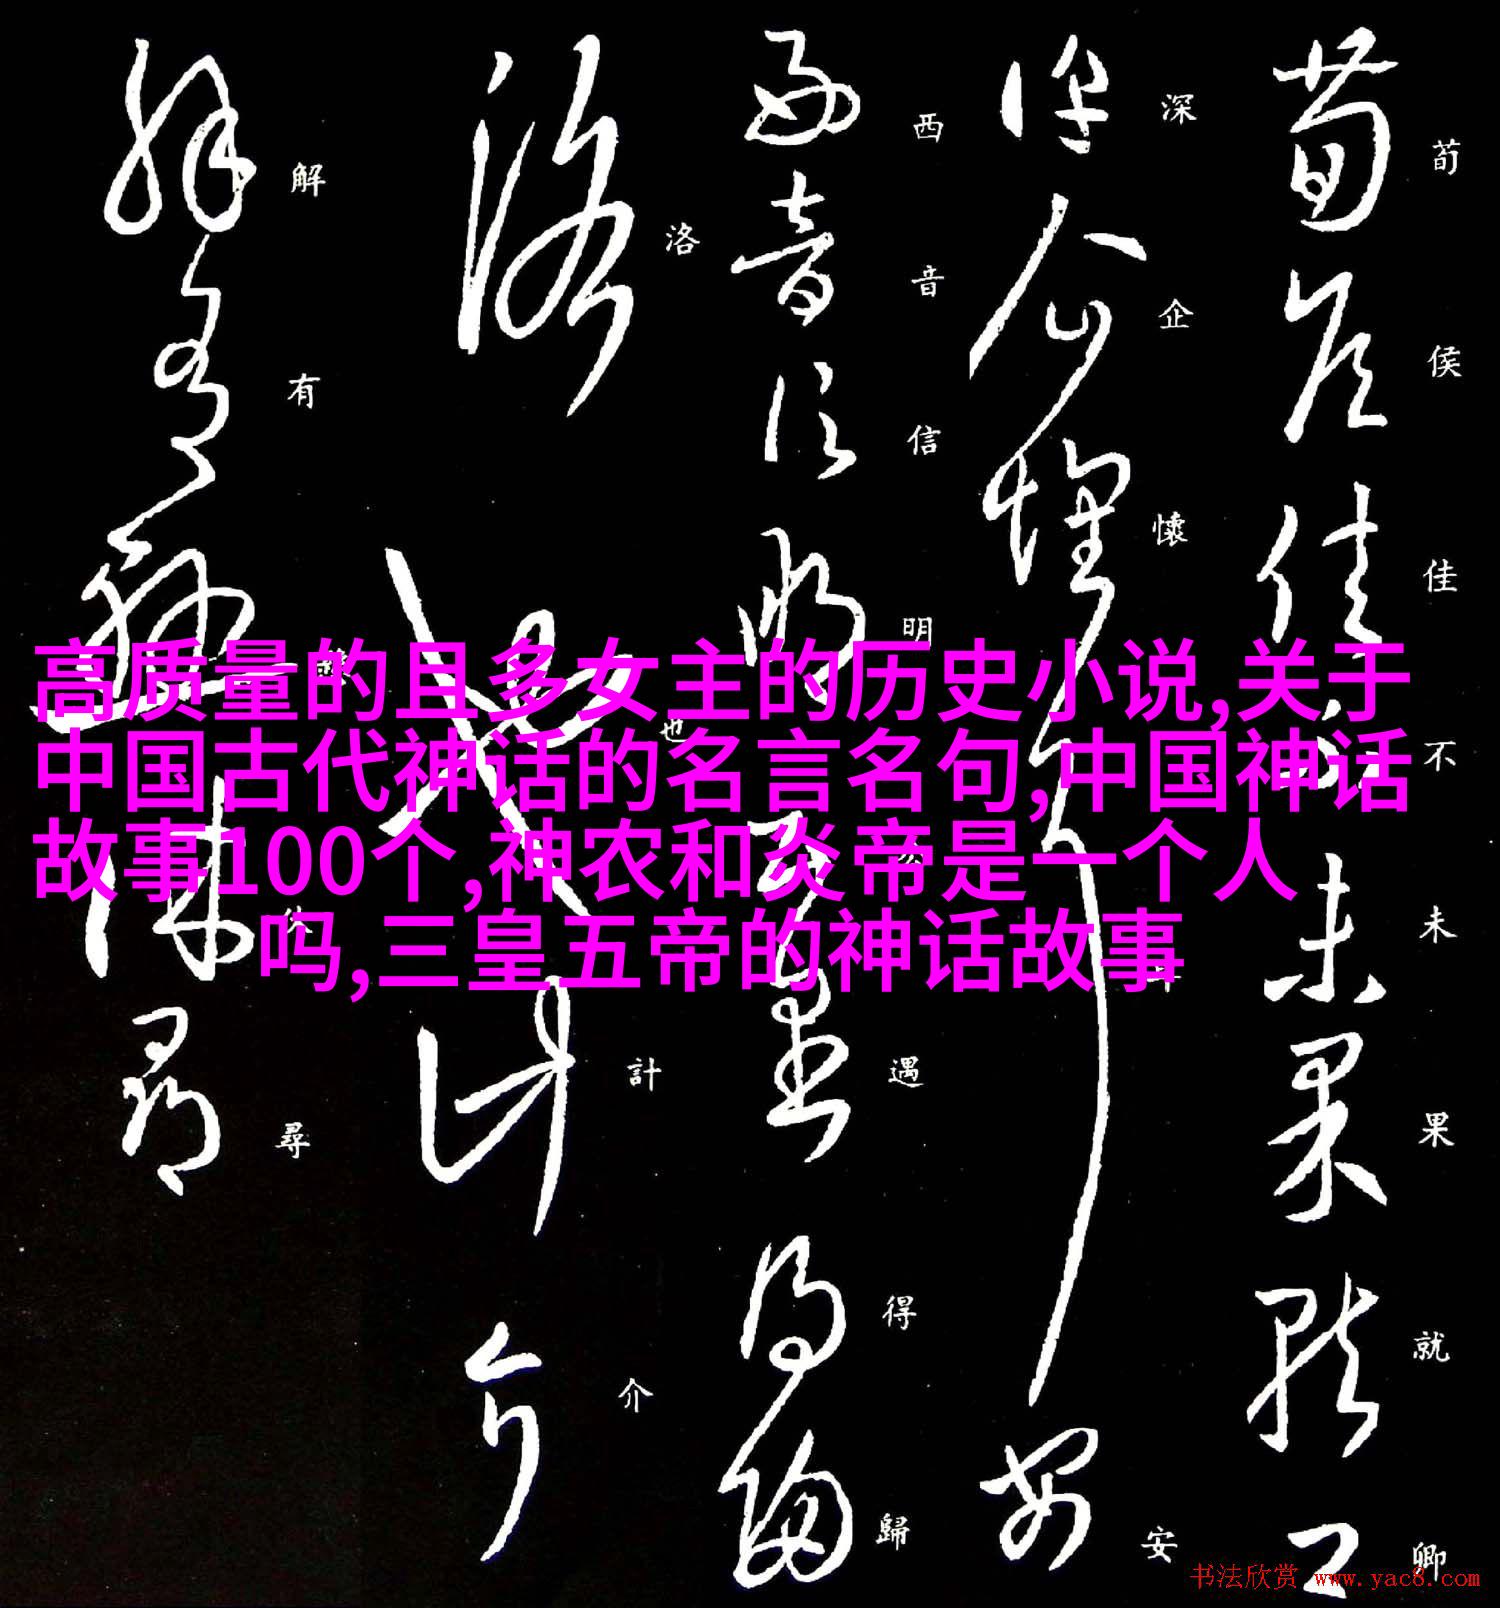 荀侯佳不未果就卿
深企懷耳安
西音信明公遇得歸
洛也計介
解有懸休尋
高质量的且多女主的历史小说,关于
中国古代神话的名言名句,中国神话
故事100个,神农和炎帝是一个人
吗,三皇五帝的神话故事
书法欣赏 www.yac8.com